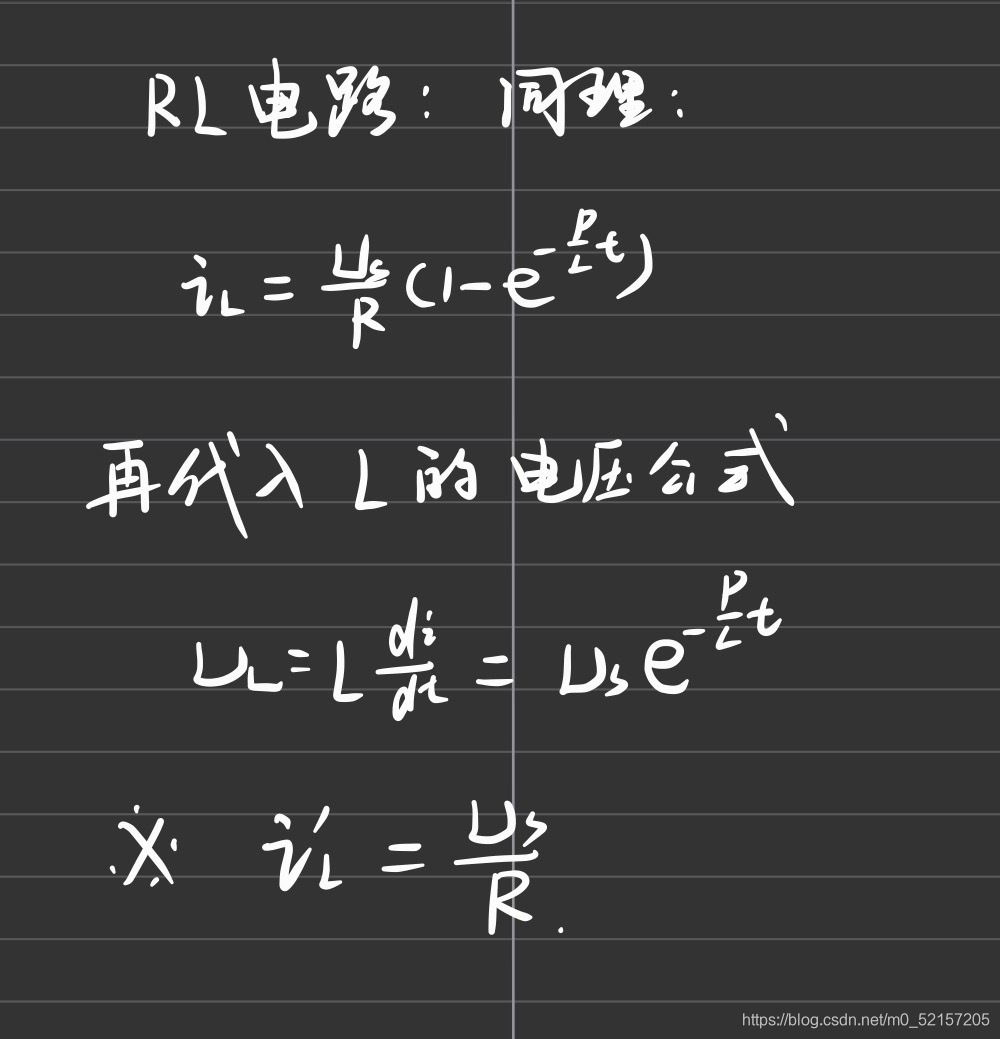 RL电路：同理：
i_L = \frac{U_s}{R}(1-e^{-\frac{R}{L}t})
再代入L的电压公式
u_L = L\frac{di}{dt} = U_s e^{-\frac{R}{L}t}
※ i'_L = \frac{U_s}{R}.
https://blog.csdn.net/m0_52157205